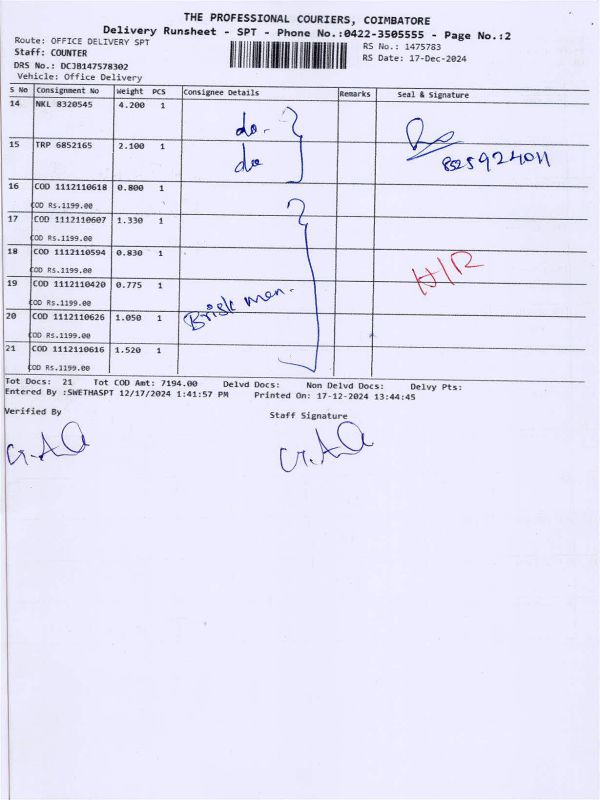 THE PROFESSIONAL COURIERS, COIMBATORE
Delivery Runsheet - SPT - Phone No.:0422-3505555 - Page No.:2
Route: OFFICE DELIVERY SPT
RS No.: 1475783
Staff: COUNTER
RS Date: 17-Dec-2024
DRS No.: DCJB147578302
Vehicle: Office Delivery
S No Consignment No Weight PCS Consignee Details Remarks Seal & Signature
14 NKL 8320545 4.200 1 do.
15 TRP 6852165 2.100 1 do
8525924011
16 COD 1112110618 0.800 1
COD Rs.1199.00
17 COD 1112110607 1.330 1
COD Rs.1199.00
18 COD 1112110594 0.830 1
COD Rs.1199.00
H/R
19 COD 1112110420 0.775 1
COD Rs.1199.00
Brisk men.
20 COD 1112110626 1.050 1
COD Rs.1199.00
21 COD 1112110616 1.520 1
COD Rs.1199.00
Tot Docs: 21 Tot COD Amt: 7194.00 Delvd Docs: Non Delvd Docs: Delvy Pts:
Entered By :SWETHASPT 12/17/2024 1:41:57 PM Printed On: 17-12-2024 13:44:45
Verified By
Staff Signature